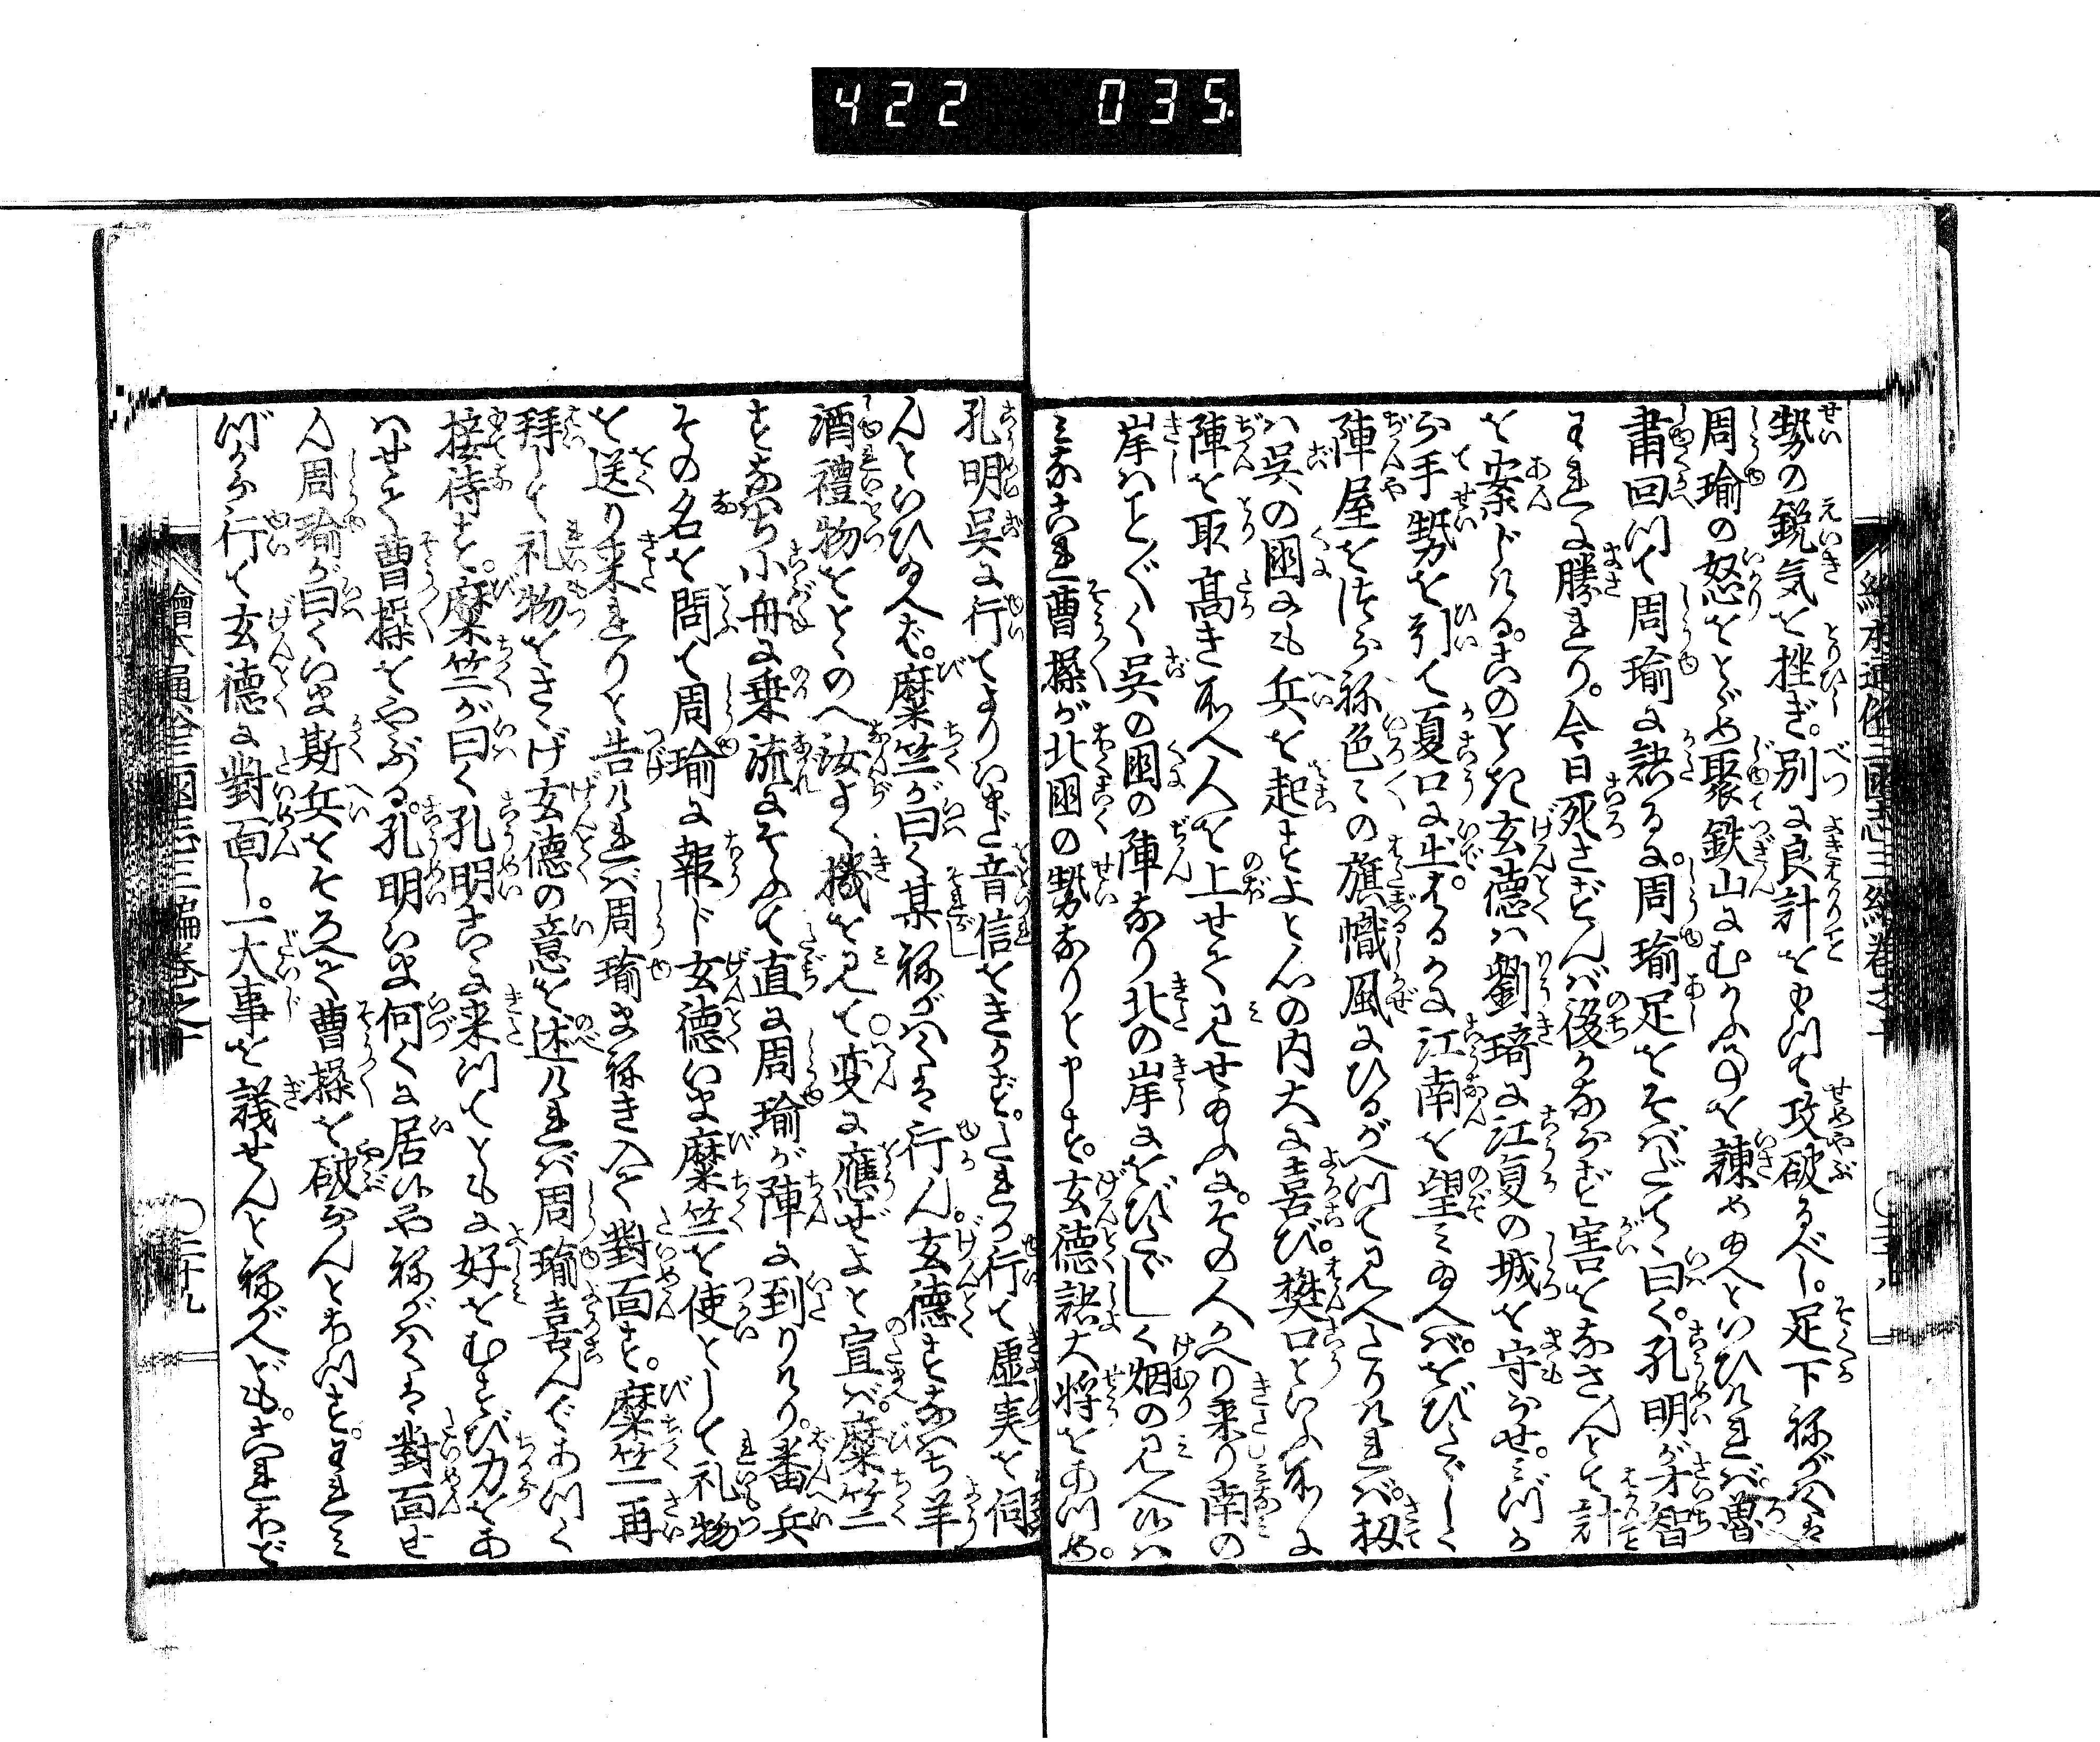 422 035
繪本通俗三國志三編卷之十
勢の鋭気を挫ぎ。別に良計をもつて攻破るべし。足下ねがはくは
周瑜の怒をとゞめ聚鉄山にむかふ事を諫め給へといひければ。魯
粛回つて周瑜に訣るに。周瑜足をそばだてゝ曰く。孔明が才智
われに勝れり。今日死さずんば後かならず害をなさんとて計
を案じける。このとき玄徳は劉琦に江夏の城を守らせ。みづか
ら手勢を引て夏口に出。はるかに江南を望み給へば。おびたゞしく
陣屋をつらね色々の旗幟風にひるがへつて見へたりければ。扨
は呉の国にも兵を起すよと心の内大に喜び。樊口といふ所に
陣を取高き所へ人を上せて見せ給ふに。その人かへり来り南の
岸はこと〲く呉の国の陣なり北の岸にをびたゞしく烟の見へ候は
みなこれ曹操が北国の勢なりと申す。玄徳諸大将をあつめ。
孔明呉に行てよりいまだ音信をきかず。たれか行て虚実を伺
んといひ給へば。糜竺が曰く某ねがはくは行ん。玄徳すなはち羊
酒禮物をとゝのへ汝よく機を見て変に應ぜよと宣ば。糜竺
すなはち小舟に乗流にそふて直に周瑜が陣に到りけり。番兵
その名を問て周瑜に報じ玄徳いま糜竺を使として礼物
を送り来れりと告ければ周瑜まねき入て對面す。糜竺再
拜して礼物をさゝげ玄徳の意を述ければ周瑜喜んであつく
接待す。糜竺が曰く孔明こゝに来つてともに好をむすび力をあ
はせて曹操をやぶる。孔明いま何くに居候やねがはくは對面せ
ん周瑜が曰くいま斯兵をそろへて曹操を破らんとほつす。われみ
づから行て玄徳に對面し。一大事を議せんとねがへども。これほど
繪本通俗三國志三編卷之十
〇二十九